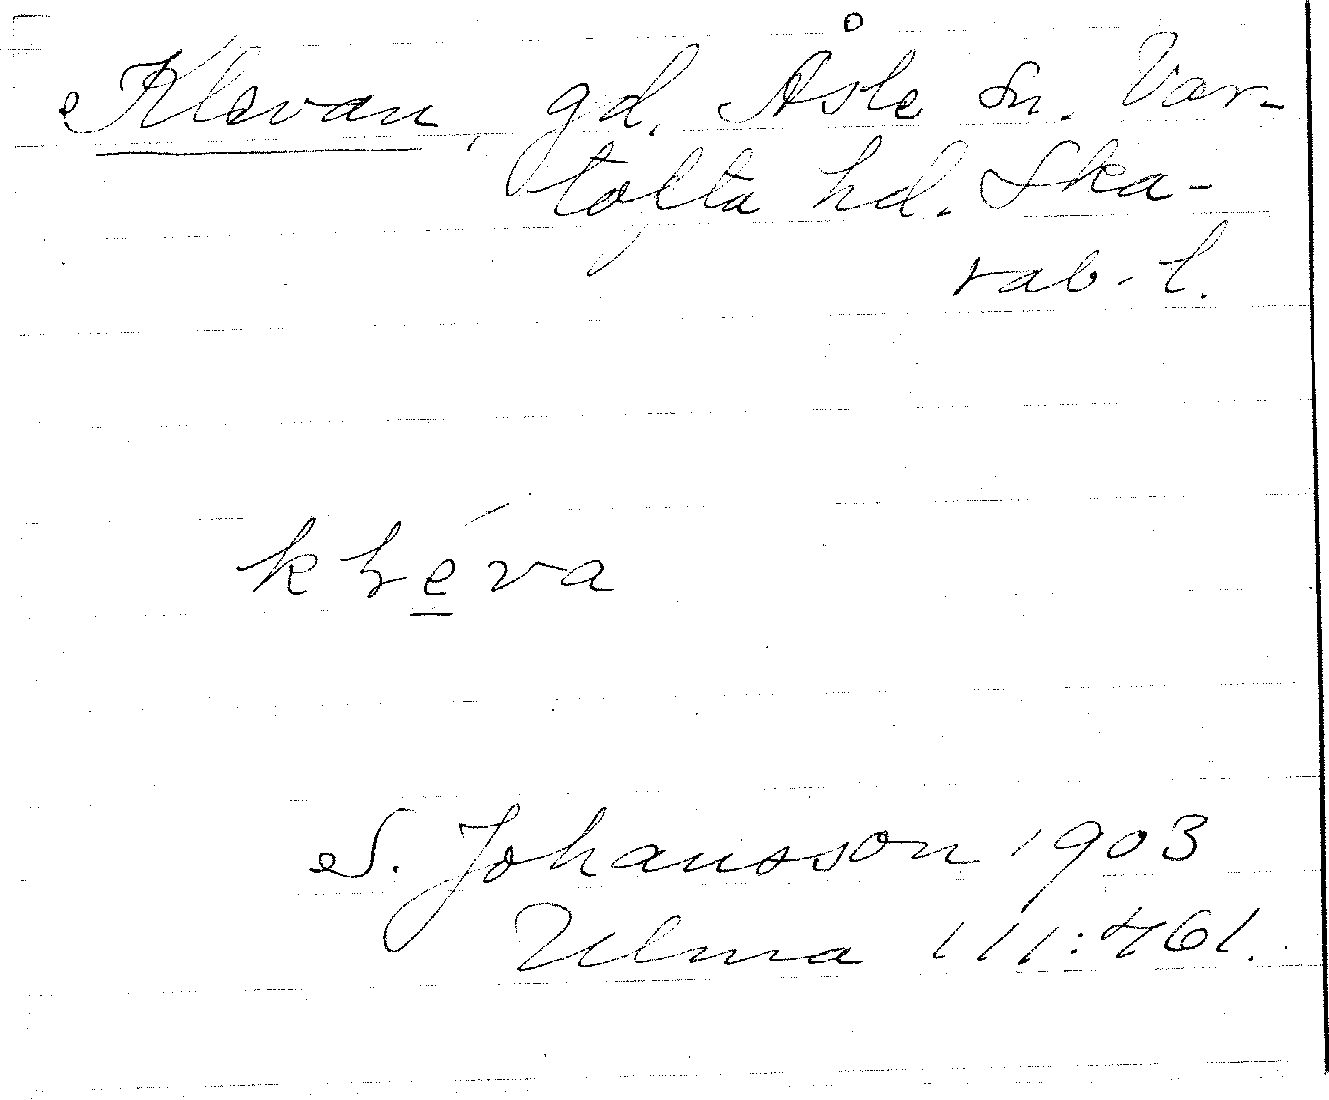 Klevan, gd. Åsle sn. Var-
tofta hd. Ska-
rab. l.
kl̥éva
S. Johansson 1903
Ulma 111:461.